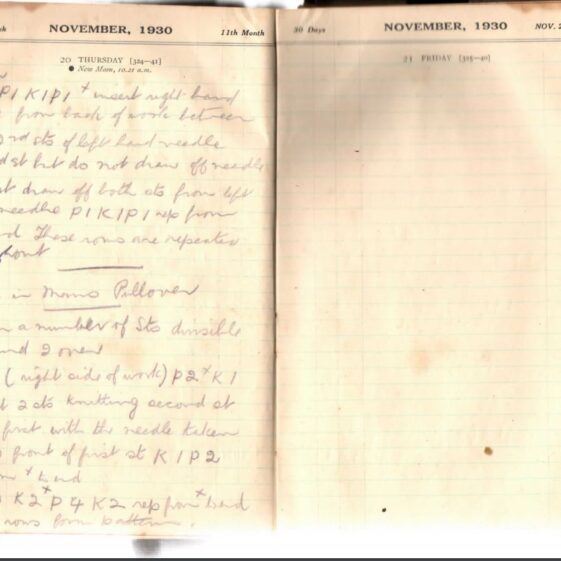 NOVEMBER, 1930
11th Month
20 THURSDAY [324—41]
● New Moon, 10.21 a.m.
P1 K1 P1 * insert right hand
from back of work between
3rd sts of left hand needle
st but do not draw off needle
draw off both sts from left
needle P1 K1 P1 rep from
These rows are repeated
in Mans Pullover
a number of Sts divisible
and 2 over
(right side of work) P2 * K1
2 sts knitting second st
first with the needle taken
front of first st K1 P2
* to end
K2 * P4 K2 rep from * to end
rows form pattern.
30 Days
NOVEMBER, 1930
NOV.
21 FRIDAY [325—40]